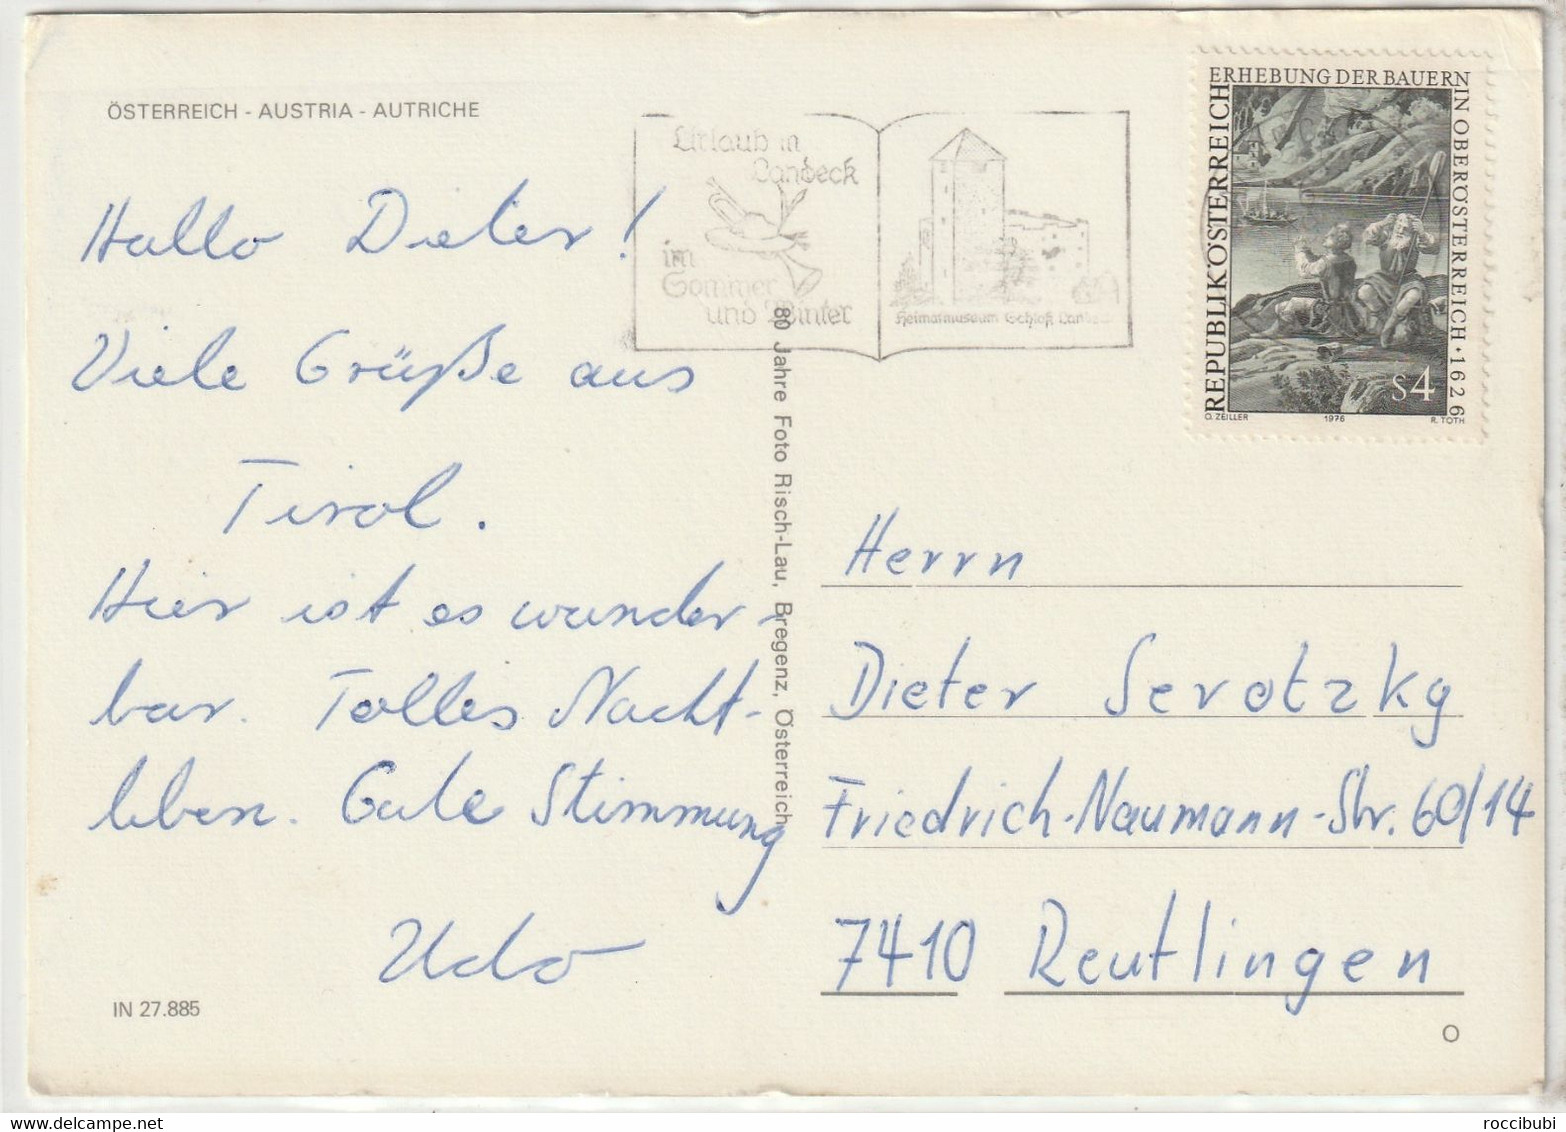 ÖSTERREICH - AUSTRIA - AUTRICHE
Hallo Dieter!
Viele Grüße aus
Tirol.
Hier ist es wunder-
bar. Tolles Nacht-
leben. Gute Stimmung
Udo
IN 27.885
80 Jahre Foto Risch-Lau, Bregenz, Österreich
Urlaub in
Landeck
im
Sommer
und Winter
Heimatmuseum Schloß Landeck
REPUBLIK ÖSTERREICH
ERHEBUNG DER BAUERN IN OBERÖSTERREICH · 1626
S4
O. ZEILLER 1976 R. TOTH
Herrn
Dieter Serotzky
Friedrich-Naumann-Str. 60/14
7410 Reutlingen
O
roccibubi